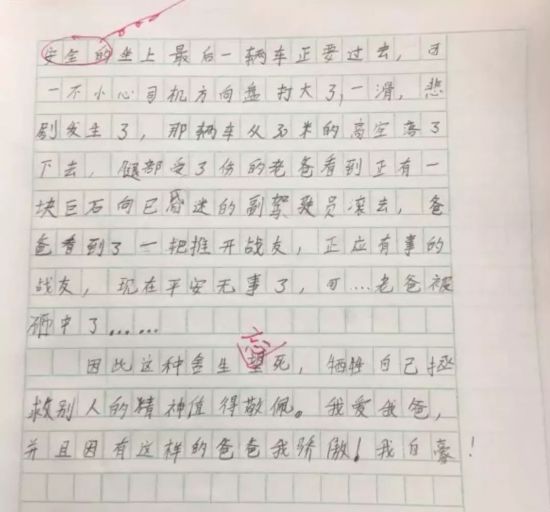 安全的坐上最后一辆车正要过去，可
一不小心司机方向盘打大了，一滑，悲
剧发生了，那辆车从30米的高空落了
下去，腿部受了伤的老爸看到正有一
块巨石向已昏迷的副驾驶员滚去，爸
爸看到了一把推开战友，正应有事的
战友，现在平安无事了，可…老爸被
砸中了……
因此这种舍生望死，牺牲自己拯
忘
救别人的精神值得敬佩。我爱我爸，
并且因有这样的爸爸我骄傲！我自豪！